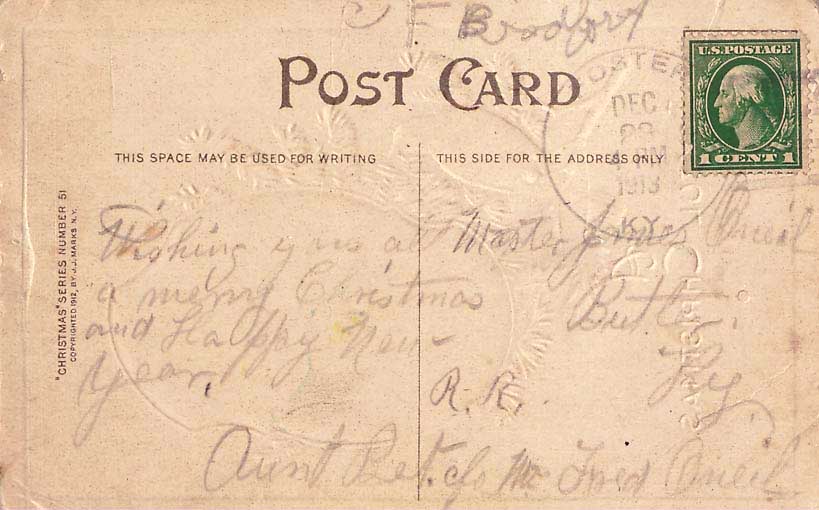 C F Bradford
U.S. POSTAGE
1 CENT 1
FOSTER
DEC
23
PM
1913
KY.
POST CARD
THIS SPACE MAY BE USED FOR WRITING
THIS SIDE FOR THE ADDRESS ONLY
"CHRISTMAS" SERIES NUMBER 51
COPYRIGHTED 1912, BY J.J. MARKS N.Y.
Wishing you all
a merry Christmas
and Happy New
Year.
Aunt Bet.
Master James Oneil
Butler.
R.R. Ky.
c/o Mr Fred Oneil